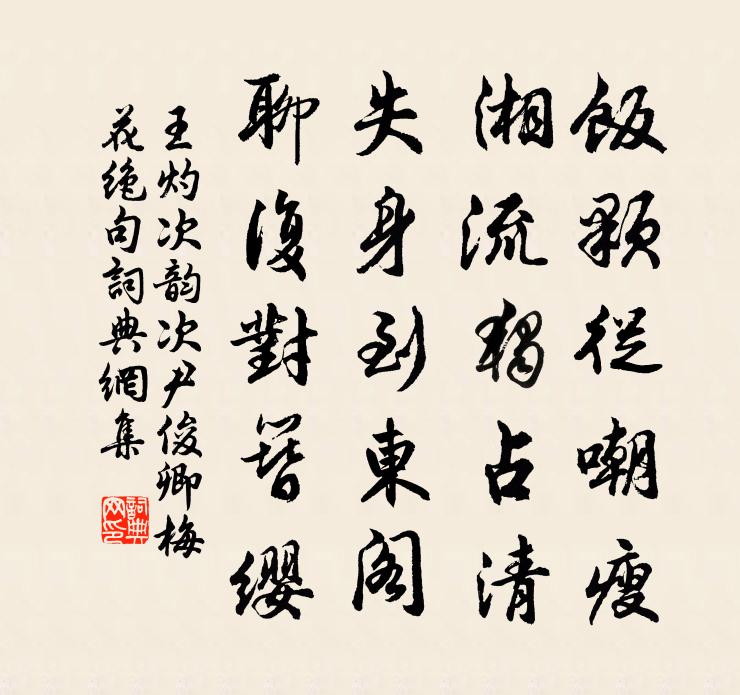 飯顆從嘲瘦
湘流獨占清
失身到東閣
聊復對簪纓
王灼次韵次尹俊卿梅
花絶句詞典網集
詞典网印